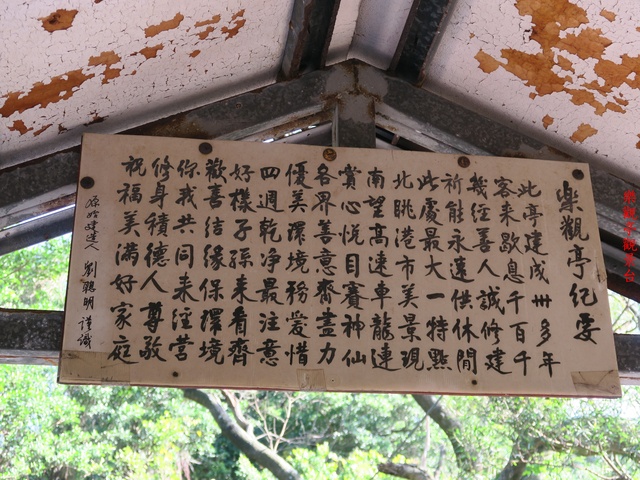 樂觀亭紀要
此亭建成卅多年
客來歇息千百千
幾經善人誠修建
祈能永遠供休閒
此處最大一特點
北眺港市美景現
南望高速車龍連
賞心悅目賽神仙
各界善意齊盡力
優美環境務愛惜
四週乾净最注意
好樣子孫來看齊
歡喜結缘保環境
你我共同来經营
修身積德人尊敬
祝福美满好家庭
原始建造人 劉鶴明 謹識